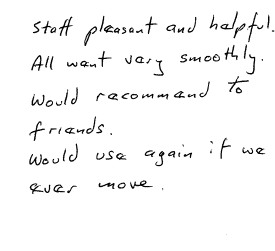 Staff pleasant and helpful.
All went very smoothly.
Would recommend to
friends.
Would use again if we
ever move.